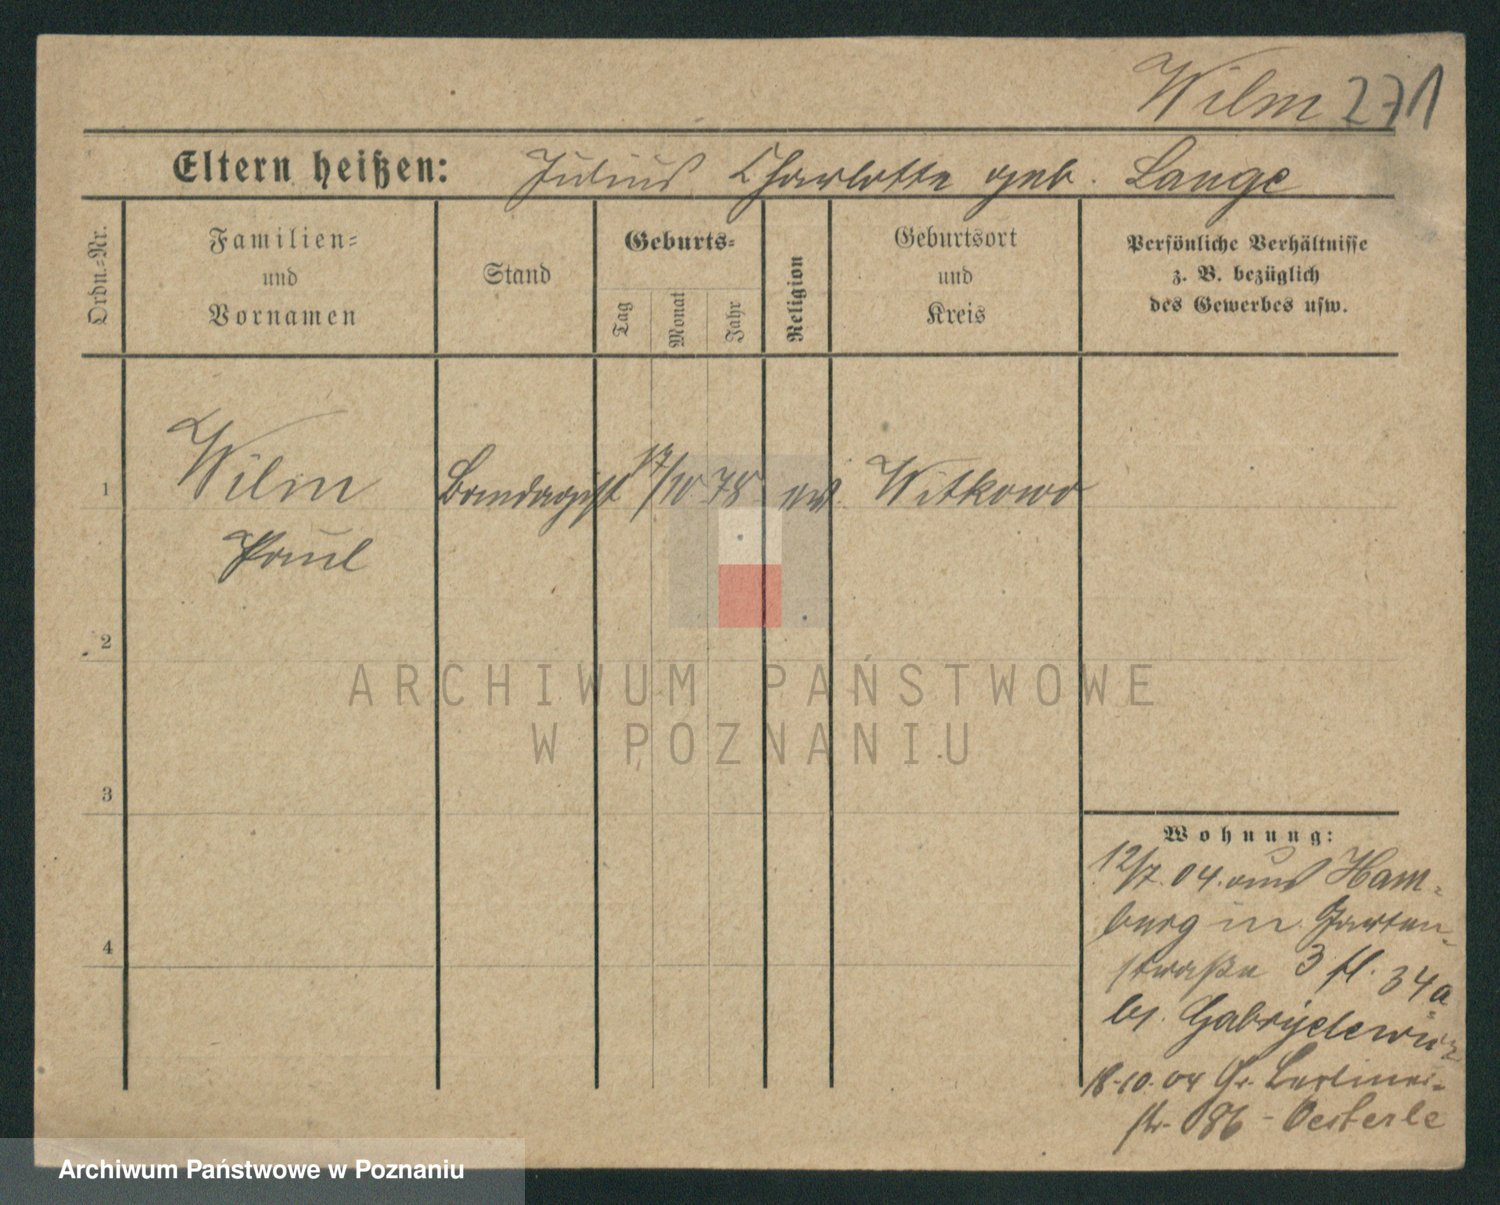 Wilm 271
Eltern heißen: Julius Charlotte geb. Lange
Ordn.-Nr.
Familien-
und
Vornamen
Stand
Geburts-
Tag
Monat
Jahr
Religion
Geburtsort
und
Kreis
Persönliche Verhältnisse
z. B. bezüglich
des Gewerbes usw.
1
Wilm
Paul
Bandagist
17/10 78
ev.
Witkowo
2
3
4
Wohnung:
12/7. 04. aus Ham-
burg in Garten-
straße 3 fl. 34a
bs. Gabryelewicz
18.10.04 Gr. Berliner-
str. 86 - Oesterle
ARCHIWUM PAŃSTWOWE
W POZNANIU
Archiwum Państwowe w Poznaniu